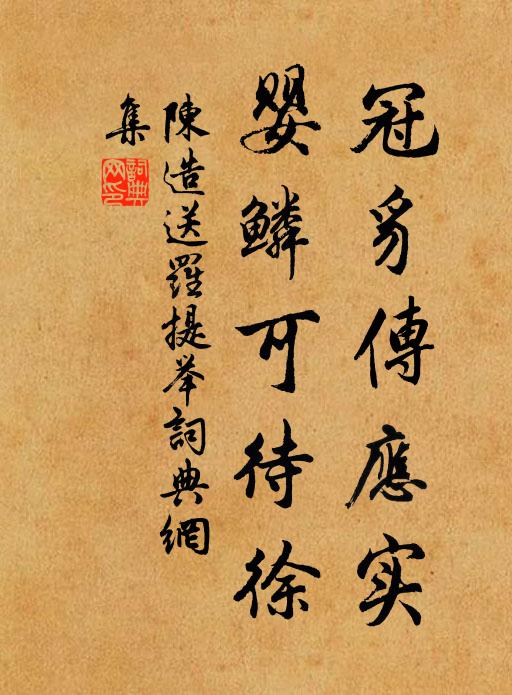 冠豸傳應实
嬰鱗可待徐
陳造送羅提举詞典網
集
詞典網印